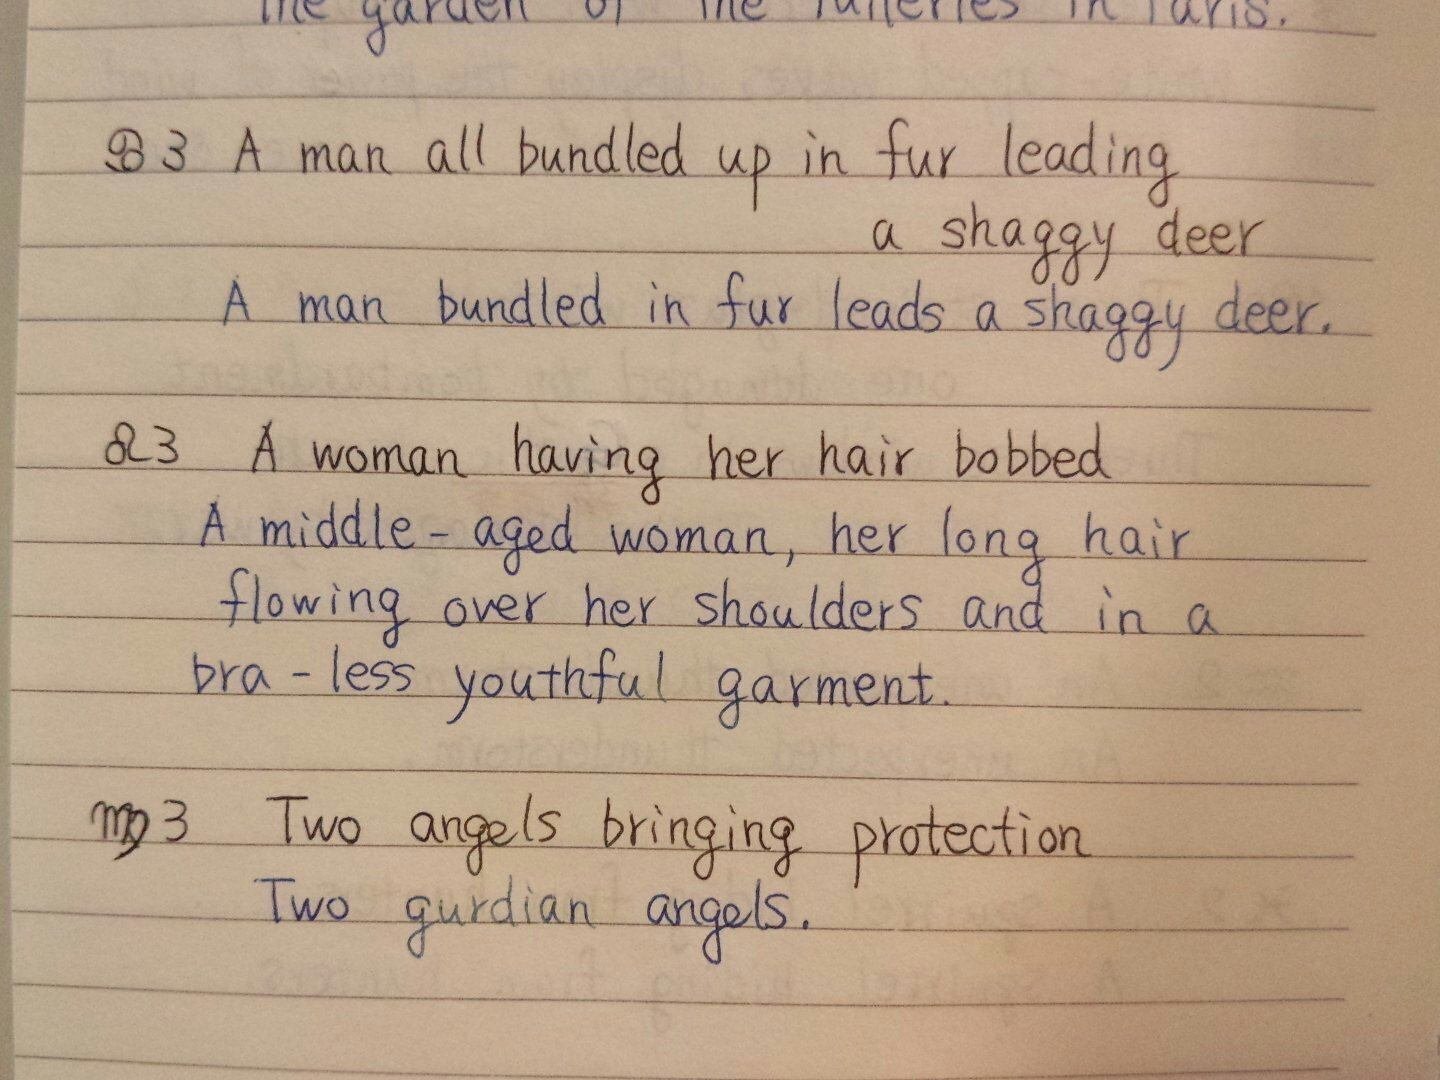 the garden of the Tuileries in Paris.
♋3 A man all bundled up in fur leading
a shaggy deer
A man bundled in fur leads a shaggy deer.
♌3 A woman having her hair bobbed
A middle-aged woman, her long hair
flowing over her shoulders and in a
bra-less youthful garment.
♍3 Two angels bringing protection
Two gurdian angels.